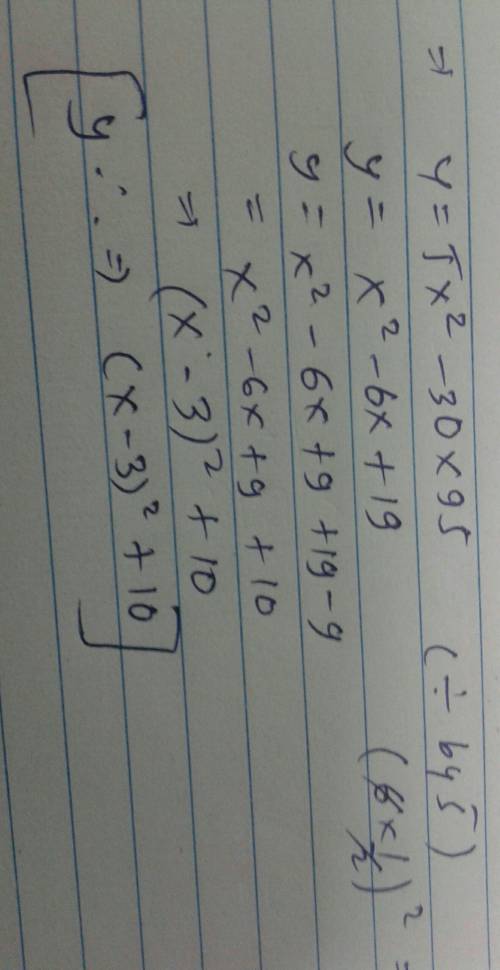 ⇒ y = 5x² - 30x95 (÷ by 5)
y = x² - 6x + 19 (6 x 1/2)² =
y = x² - 6x + 9 + 19 - 9
= x² - 6x + 9 + 10
⇒ (x - 3)² + 10
[y ∴ ⇒ (x - 3)² + 10]